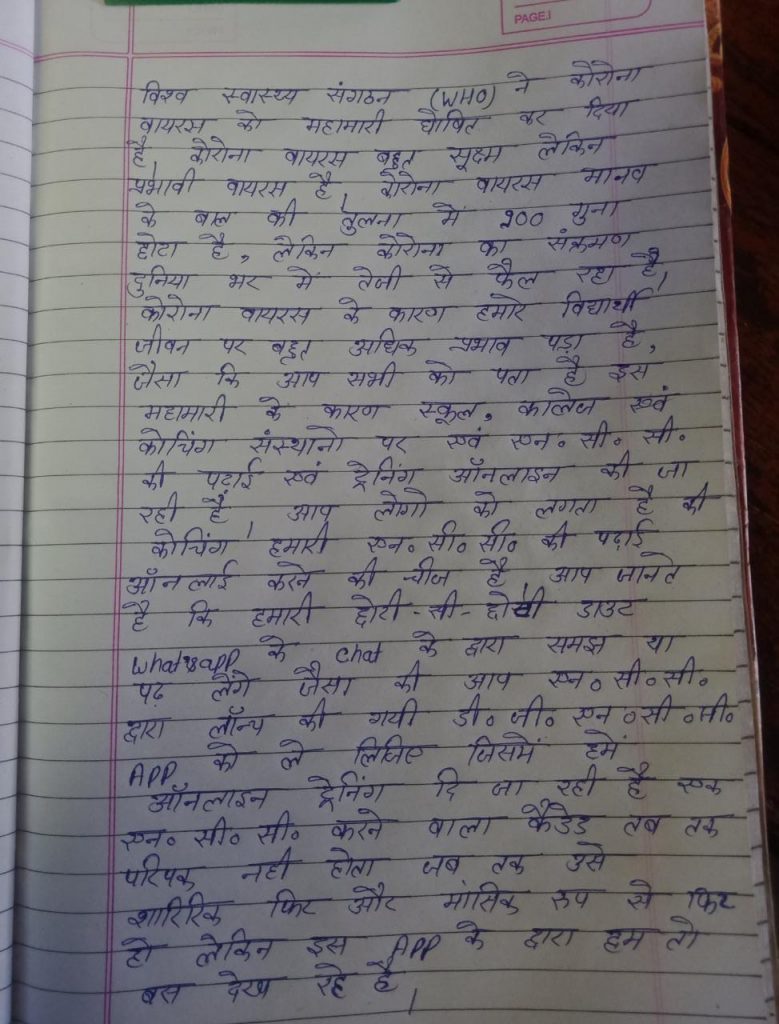 PAGE.
विश्व स्वास्थ्य संगठन (WHO) ने कोरोना
वायरस को महामारी घोषित कर दिया
है, कोरोना वायरस बहुत सूक्ष्म लेकिन
प्रभावी वायरस है, कोरोना वायरस मानव
के बाल की तुलना में 900 गुना
होटा है, लेकिन कोरोना का संक्रमण
दुनिया भर में तेजी से फैल रहा है,
कोरोना वायरस के कारण हमारे विद्यार्थी
जीवन पर बहुत अधिक प्रभाव पड़ा है,
जैसा कि आप सभी को पता है इस
महामारी के कारण स्कूल, कालेज एवं
कोचिंग संस्थानो पर एवं एन॰ सी॰ सी॰
की पढ़ाई एवं ट्रेनिंग ऑनलाइन की जा
रही है, आप लोगो को लगता है की
कोचिंग हमारी एन॰ सी॰ सी॰ की पढ़ाई
ऑनलाई करने की चीज है, आप जानते
है कि हमारी छोटी-सी-छोटी डाउट
Whatsapp के chat के द्वारा समझ या
पढ़ लेंगे जैसा की आप एन॰ सी॰ सी॰
द्वारा लॉन्च की गयी डी॰ जी॰ एन॰ सी॰ सी॰
APP को ले लिजिए जिसमें हमें
ऑनलाइन ट्रेनिंग दि जा रही है एक
एन॰ सी॰ सी॰ करने वाला कैडेड तब तक
परिपक नही होता जब तक उसे
शारिरिक फिट और मांसिक रुप से फिट
हो लेकिन इस APP के द्वारा हम तो
बस देख रहे है,